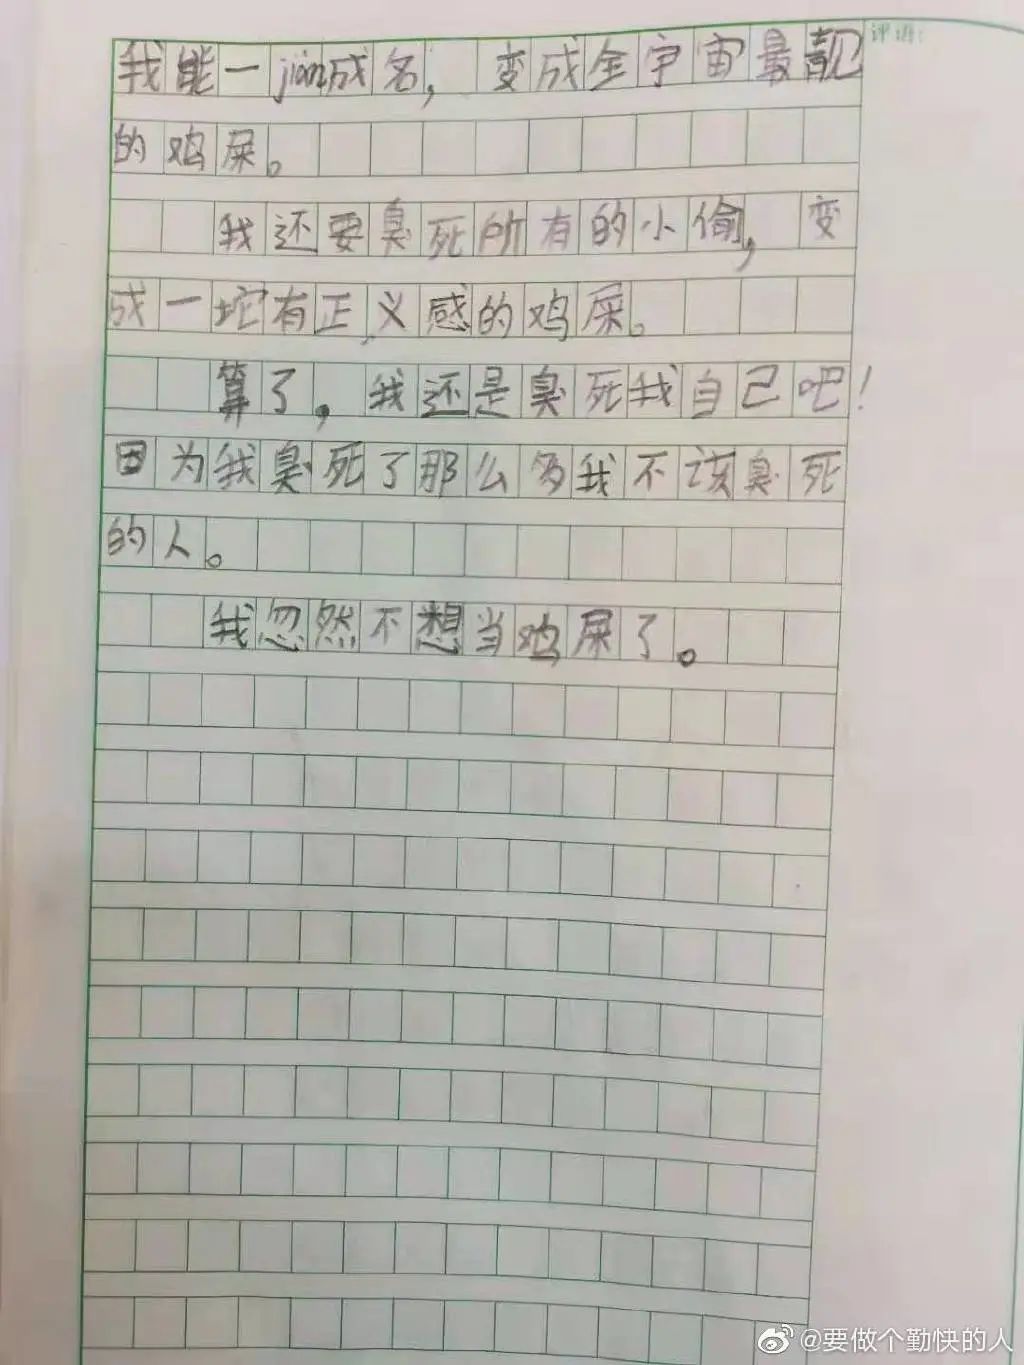 评语：
我能一jian成名，变成全宇宙最靓
的鸡屎。
我还要臭死所有的小偷，变
成一坨有正义感的鸡屎。
算了，我还是臭死我自己吧！
因为我臭死了那么多我不该臭死
的人。
我忽然不想当鸡屎了。
@要做个勤快的人